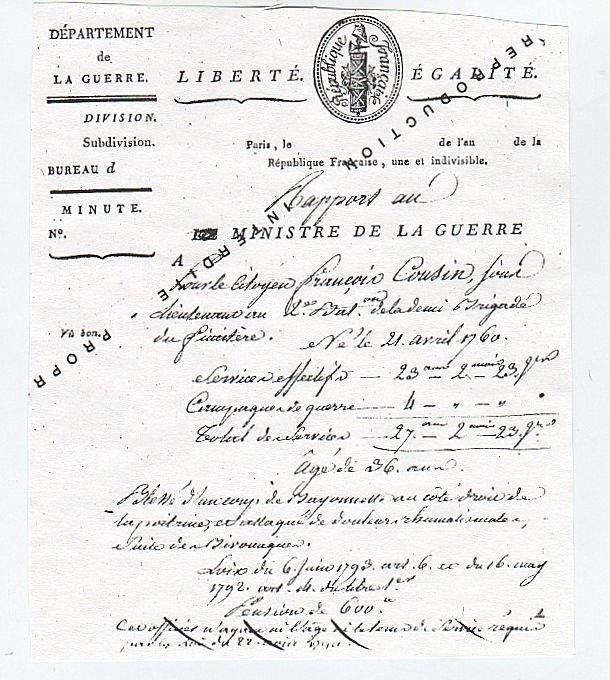 DÉPARTEMENT
de
LA GUERRE.
LIBERTÉ.
République Française
ÉGALITÉ.
DIVISION.
Subdivision.
BUREAU d
MINUTE.
N°.
Vu bon.
Paris, le de l'an de la
République Française, une et indivisible.
Rapport au
MINISTRE DE LA GUERRE
A
Pour le Citoyen François Cousin, sous
Lieutenant au 2.me Bat.on de la demi Brigade
du Finistère. Né le 21. avril 1760.
Services effectifs — 23 ans — 2 mois — 23. jrs
Campagnes de guerre — 4 — " — "
Total de Services — 27. ans — 2 mois — 23. jrs
Âgé de 36. ans.
Blessé d'un coup de Bayonnette au côté droit de
la poitrine, et attaqué de douleurs rhumatismales,
suite de Bivouaques.
Loix du 6. Juin 1793. art. 6. et du 16. may
1792. art. 4. du titre 1.er
Pension de 600.
Cet officier n'ayant ni l'âge ni le tems de Service réquis
REPRODUCTION INTERDITE
PROPR